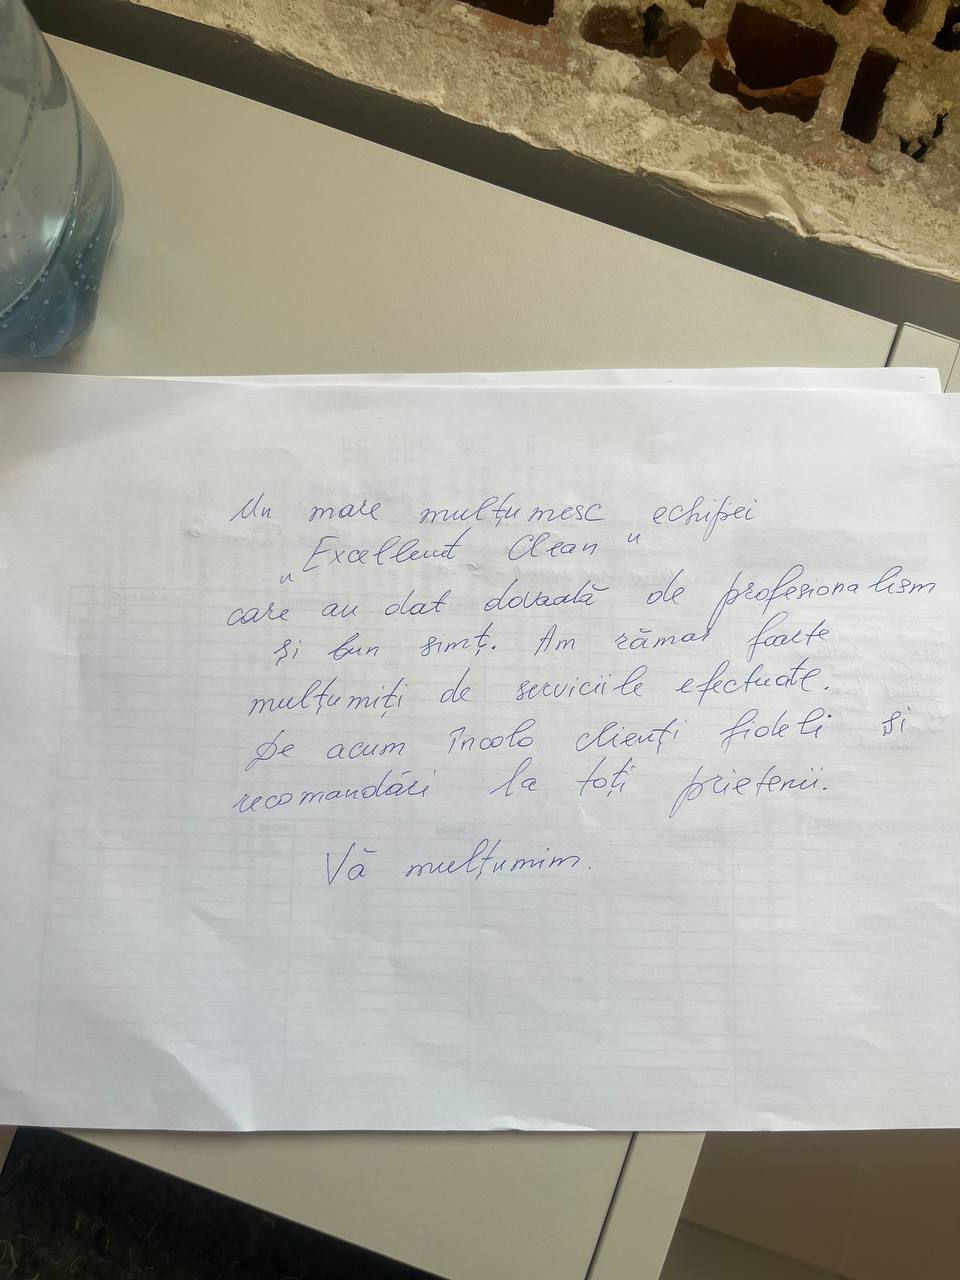 Un mare mulțumesc echipei
„Excellent Clean"
care au dat dovaală de profesionalism
și bun simț. Am rămas foarte
mulțumiți de serviciile efectuate.
De acum încolo clienți fideli și
recomandări la toți prietenii.
Vă mulțumim.